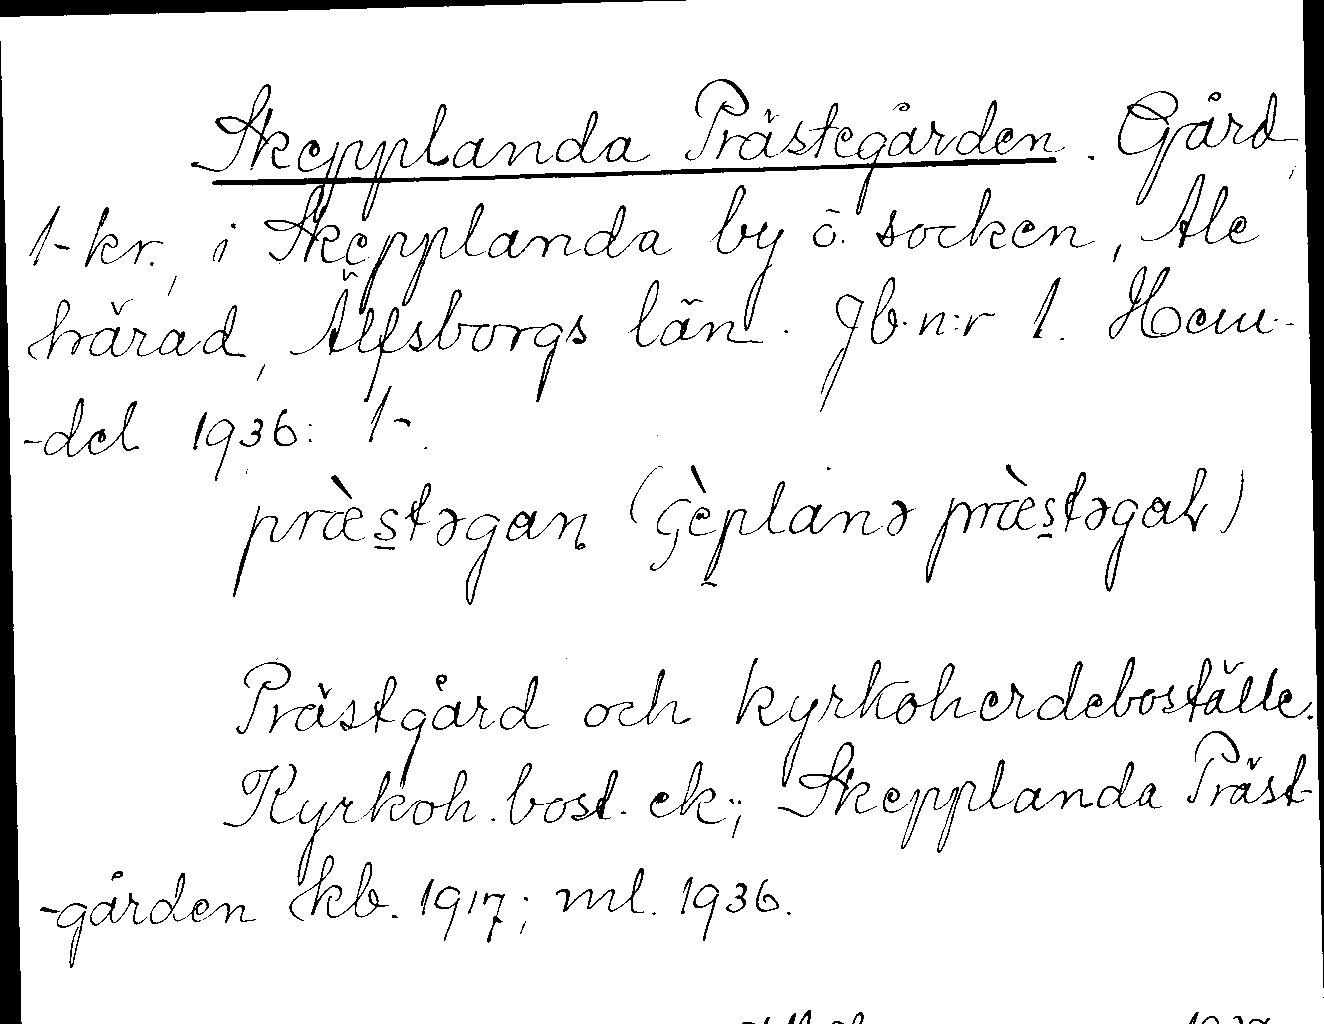 Skepplanda Prästegården. Gård,
1-kr., i Skepplanda by o. socken, Ale
härad, Älfsborgs län. Jb.n:r 1. Hem-
-del 1936: 1-.
præ̀stəgaɳ (çèplanə præ̀stəgaɽ)
Prästgård och kyrkoherdeboställe.
Kyrkoh. bost. ek.; Skepplanda Präst-
-gården kb. 1917; ml. 1936.